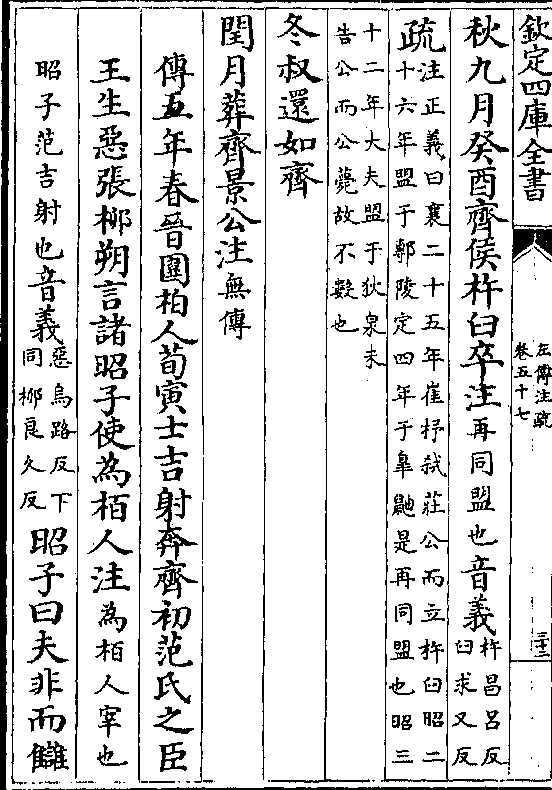 欽定四庫全書
左傳注疏
卷五十七
三十三
秋九月癸酉齊侯杵臼卒注再同盟也音義杵昌呂反
臼求又反
疏注正義曰襄二十五年崔杼弑莊公而立杵臼昭二
十六年盟于鄟陵定四年于臯鼬是再同盟也昭三
十二年大夫盟于狄泉未
告公而公薨故不數也
冬叔還如齊
閏月葬齊景公注無傳
傳五年春晉圍柏人荀寅士吉射奔齊初范氏之臣
王生惡張柳朔言諸昭子使為柏人注為柏人宰也
昭子范吉射也音義惡烏路反下
同柳良久反
昭子曰夫非而讎